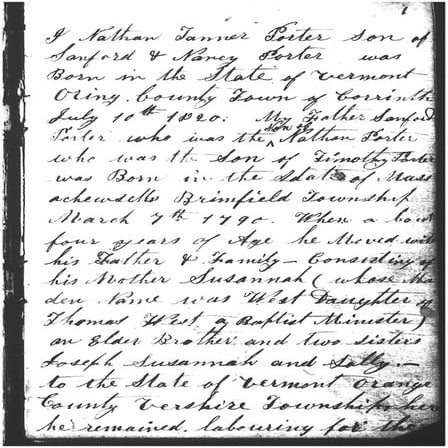 I Nathan Tanner Porter Son of
Sanford & Nancy Porter was
Born in the State of Vermont
Oring. County Town of Corrinth
July 10th 1820. My Father Sanford
Porter who was the Son of Nathan Porter
who was the Son of Timothy Porter
was Born in the State of Mass
achewsetts Brimfield Township
March 7th 1790. When a bout
four years of Age he Moved with
his Father & Family — Consisting of
his Mother Susannah (whose Mai
den Name was West Daughter of
Thomas West a Baptist Minister)
an Elder Brother and two sisters
Joseph Susannah and Sally —
to the State of Vermont Orange
County Vershire Township her
he remained labouring for the